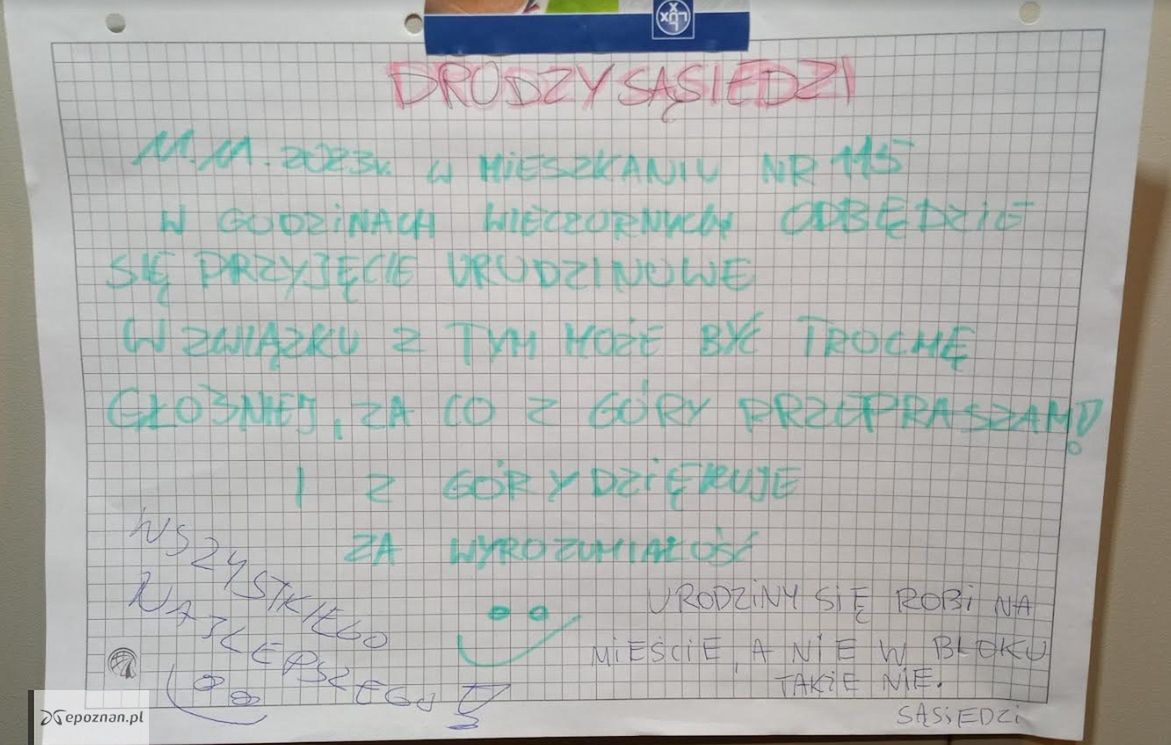 LUX
DRODZY SĄSIEDZI
11.11.2023r. W MIESZKANIU NR 115
W GODZINACH WIECZORNYCH ODBĘDZIE
SIĘ PRZYJĘCIE URODZINOWE
W ZWIĄZKU Z TYM MOŻE BYĆ TROCHĘ
GŁOŚNIEJ, ZA CO Z GÓRY PRZEPRASZAM!
I Z GÓRY DZIĘKUJE
ZA WYROZUMIAŁOŚĆ
WSZYSTKIEGO
NAJLEPSZEGO
URODZINY SIĘ ROBI NA
MIEŚCIE A NIE W BLOKU
TAKIE NIE.
SĄSIEDZI
epoznan.pl